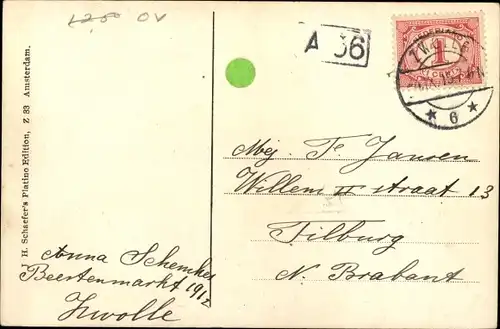 125 OV
A 36
NEDERLAND
1
CENT
ZWOLLE
6
Mej. Te. Jansen
Willem II straat 13
Tilburg
N. Brabant
Anna Schemkes
Beestenmarkt 1912
Zwolle
J. H. Schaefer's Platino Edition, Z 33 Amsterdam.